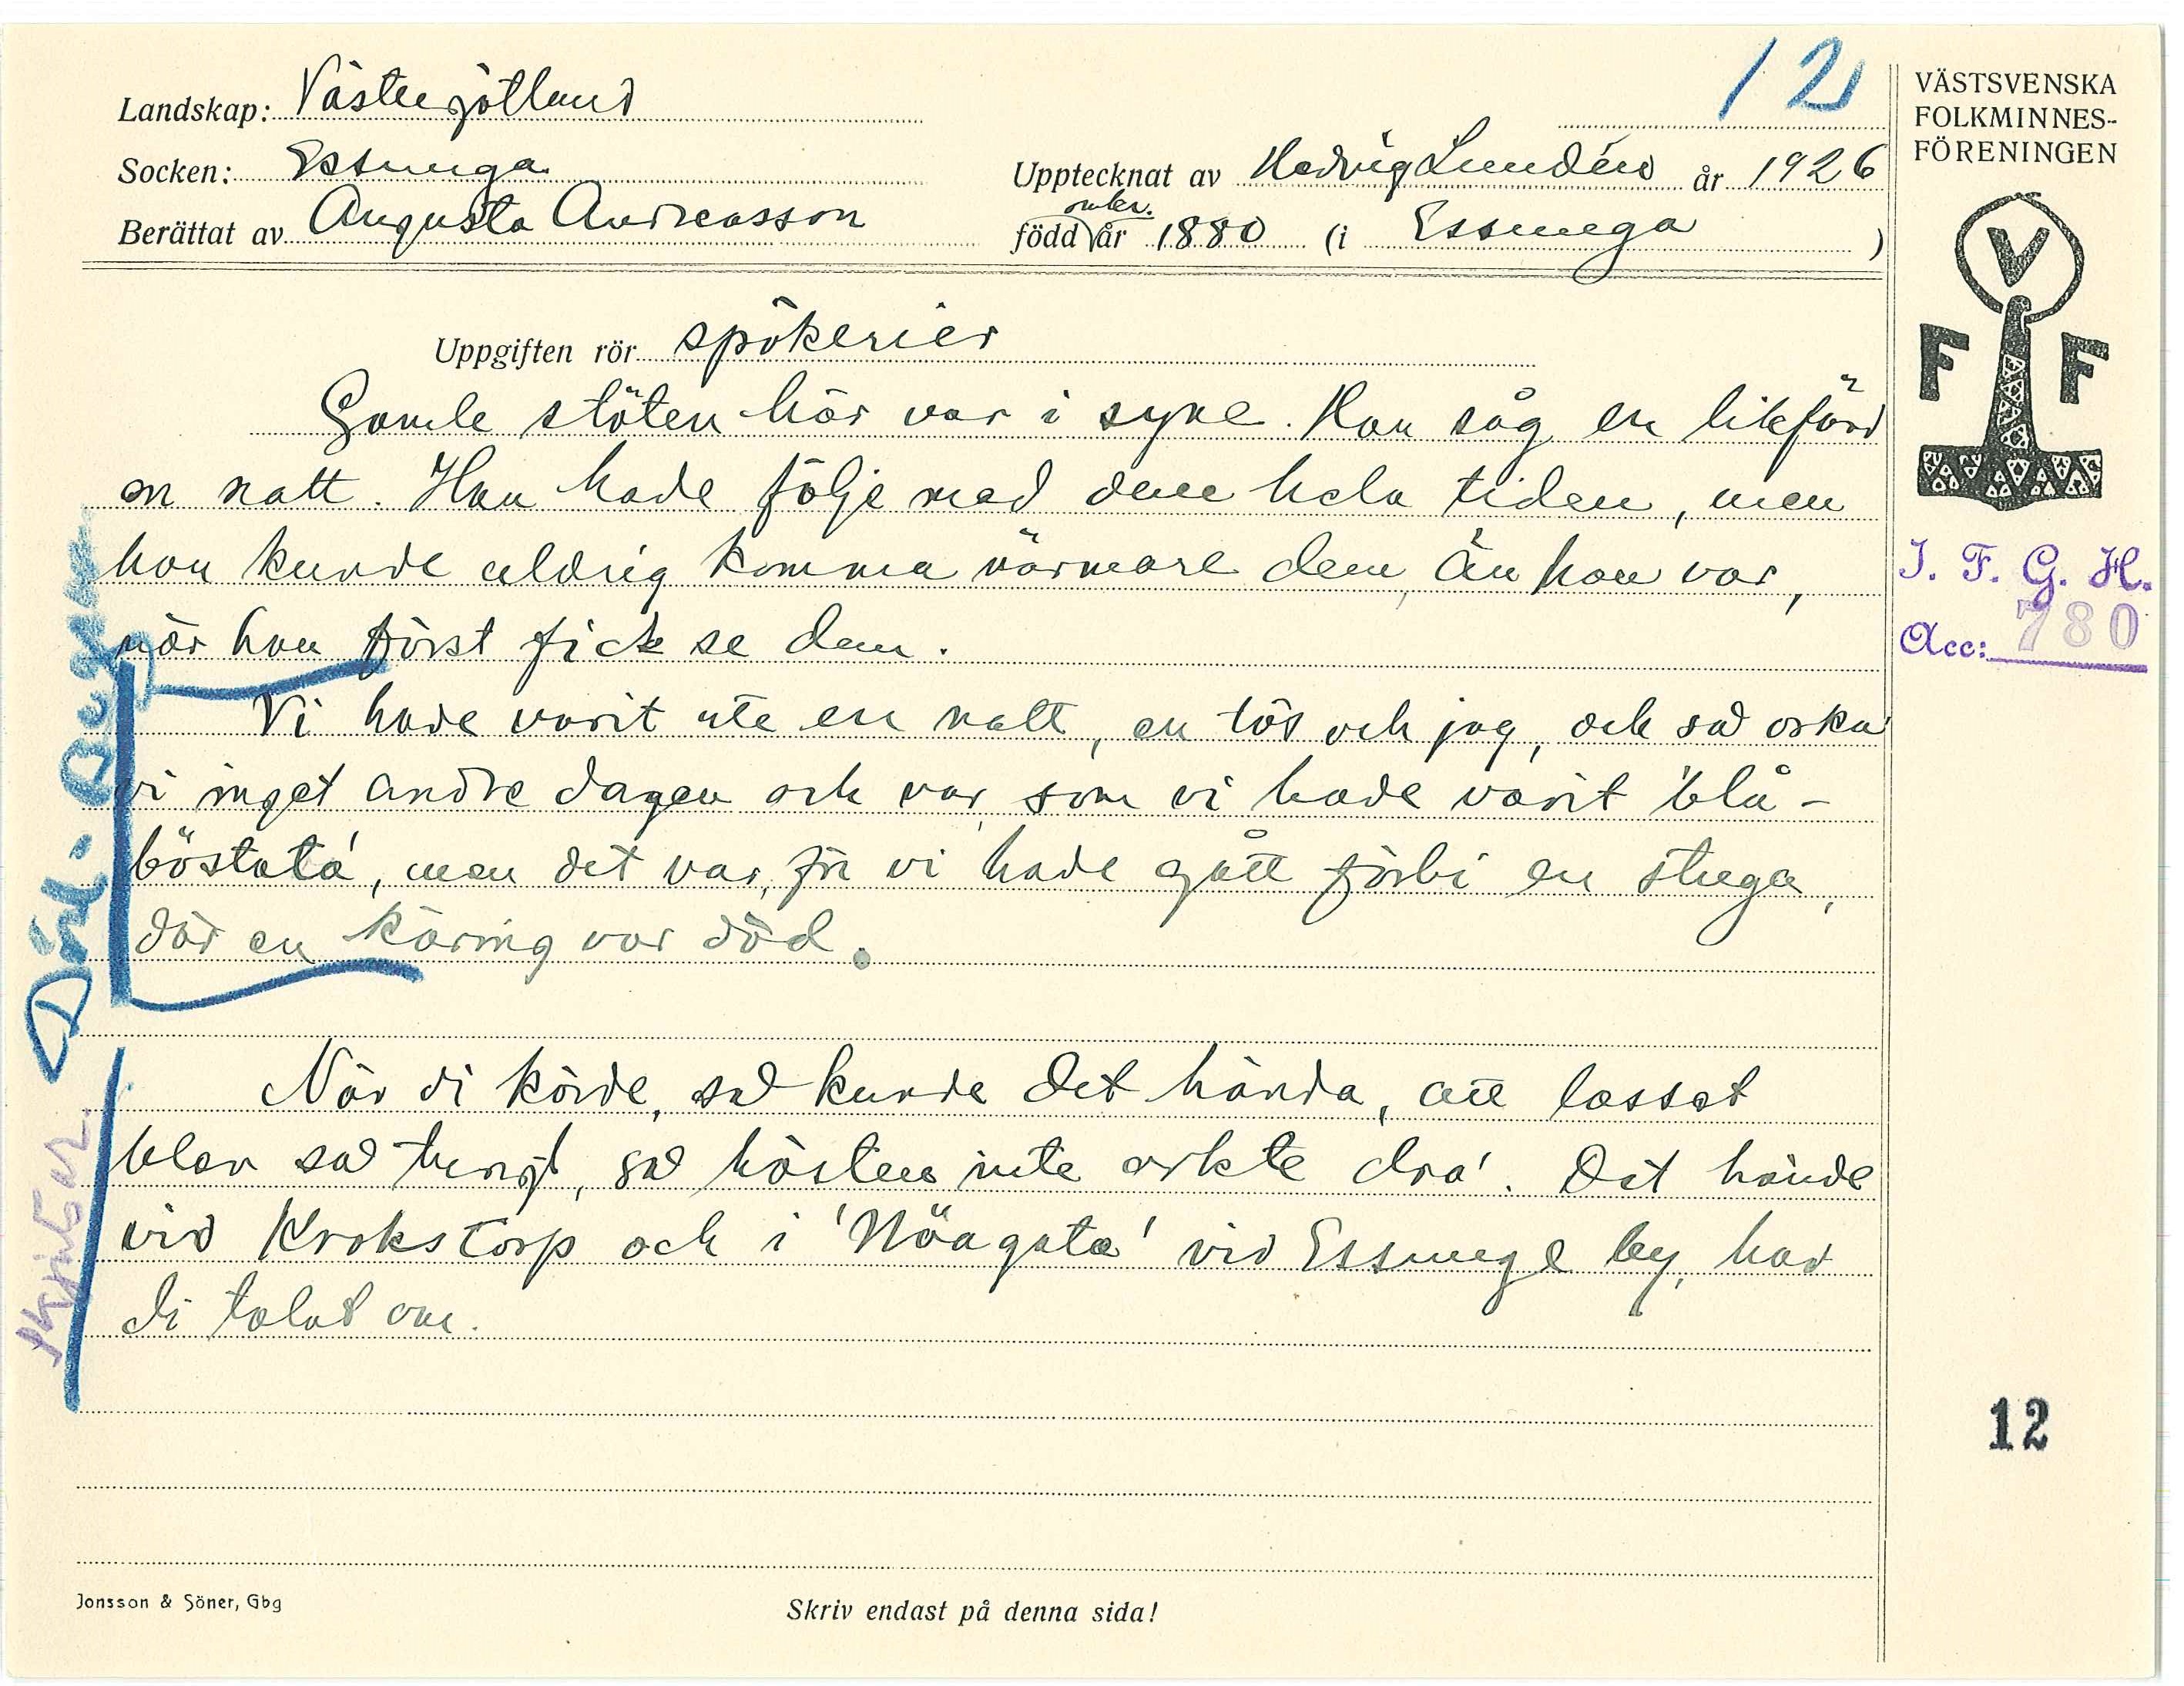 12
VÄSTSVENSKA
FOLKMINNES-
FÖRENINGEN
Landskap: Västergötland
Socken: Essunga
Upptecknat av Hedvig Lundén år 1926
Berättat av Augusta Andreasson
omkr.
född år 1880 (i Essunga)
V
F F
Uppgiften rör spökerier
Gamle stöten här var i syne. Han såg en likfärd
en natt. Han hade följe med dem hela tiden, men
han kunde aldrig komma närmare dem, än han var,
när han först fick se dem.
Vi hade varit ute en natt, en tös och jag, och så orka
vi inget andre dagen och var som vi hade varit 'blå-
böstata', men det var, för vi hade gått förbi en stuga,
där en käring var död.
När di körde, så kunde det hända, att lasset
blev så tungt, så hästen inte orkte dra'. Det hände
vid Krokstorp och i 'Nöagata' vid Essunge by, har
di talat om.
I. F. G. H.
Acc: 780
12
Jonsson & Söner, Gbg
Skriv endast på denna sida!